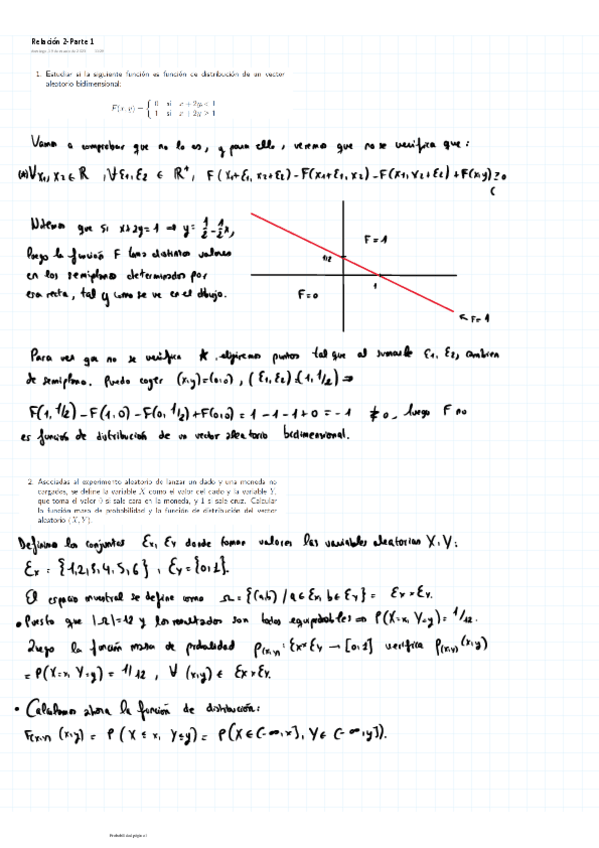 Relación 2-Parte 1
1. Estudiar si la siguiente función es función de distribución de un vector
aleatorio bidimensional:
F(x, y) = { 0 si x + 2y < 1
1 si x + 2y ≥ 1
Vamos a comprobar que no lo es, y para ello, veremos que no se verifica que:
(*) ∀x₁, x₂ ∈ ℝ, ∀ε₁, ε₂ ∈ ℝ⁺, F(x₁+ε₁, x₂+ε₂) - F(x₁+ε₁, x₂) - F(x₁, x₂+ε₂) + F(x,y) ≥ 0
Notemos que si x+2y=1 ⇒ y = 1/2 - 1/2 x,
luego la función F toma distintos valores
en los semiplanos determinados por
esa recta, tal y como se ve en el dibujo.
F=1
1/2
1
F=0
F=1
Para ver que no se verifica *, elijiremos puntos tal que al sumarle ε₁, ε₂, cambien
de semiplano. Puedo coger (x,y)=(0,0), (ε₁,ε₂)=(1,1/2) ⇒
F(1,1/2) - F(1,0) - F(0,1/2) + F(0,0) = 1 - 1 - 1 + 0 = -1 ≱ 0, luego F no
es función de distribución de un vector aleatorio bidimensional.
2. Asociadas al experimento aleatorio de lanzar un dado y una moneda no
cargados, se define la variable X como el valor del dado y la variable Y,
que toma el valor 0 si sale cara en la moneda, y 1 si sale cruz. Calcular
la función masa de probabilidad y la función de distribución del vector
aleatorio (X, Y).
Definimos los conjuntos Ex, Ey donde toman valores las variables aleatorias X, Y:
Ex = {1,2,3,4,5,6}, Ey = {0,1}.
El espacio muestral se define como Ω = {(a,b) / a ∈ Ex, b ∈ Ey} = Ex × Ey.
• Puesto que |Ω|=12 y los resultados son todos equiprobables ⇒ P(X=x, Y=y) = 1/12.
Luego la función masa de probabilidad p(x,y): Ex×Ey → [0,1] verifica p(x,y) (x,y)
= P(X=x, Y=y) = 1/12, ∀ (x,y) ∈ Ex×Ey.
• Calculamos ahora la función de distribución:
F(x,y) (x,y) = P(X ≤ x, Y ≤ y) = P(X ∈ (-∞,x], Y ∈ (-∞,y]).